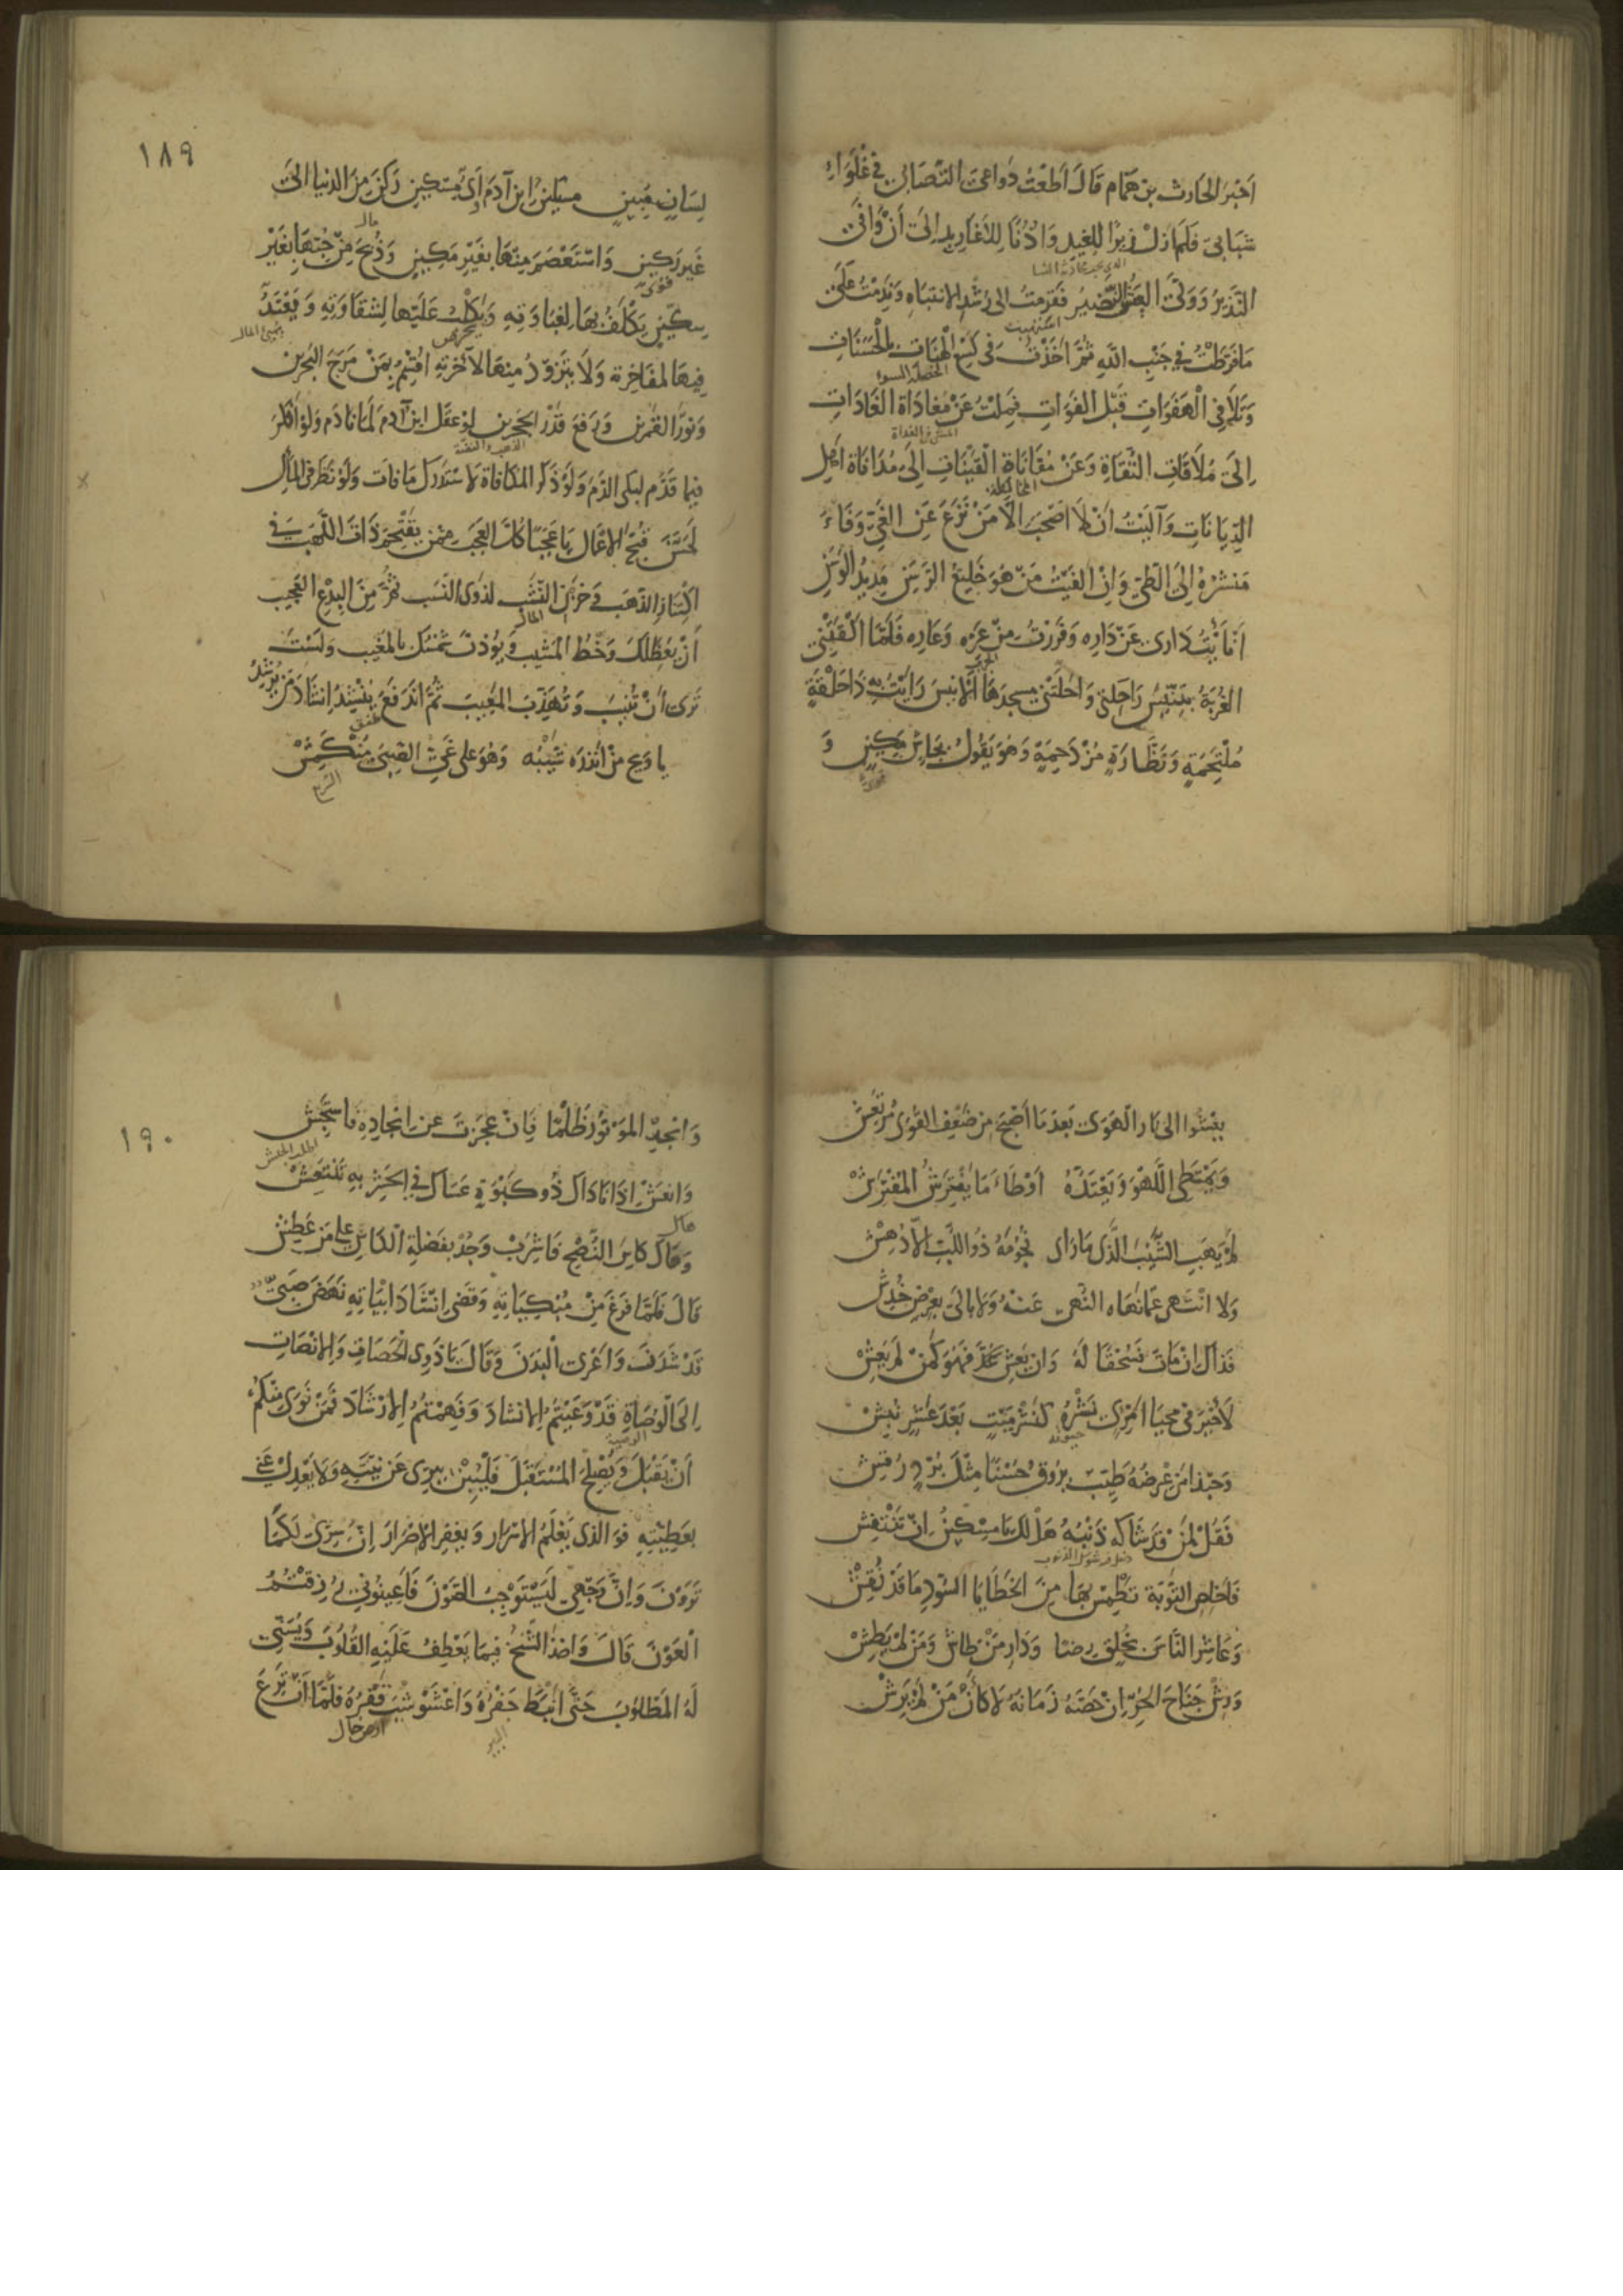 اَخْبَرَ الحَارث بن هَمَّام قَالَ اَطَعْتُ دَوَاعِىَ التَّصَابِى فى غُلَوَاءِ
شَبَابِى فَلَمْ اَزَلْ زِيرًا لِلْغِيدِ وَاُذُنًا لِلْاَغَارِيدِ اِلَى اَنْ وَافَى
النَّذِيرُ وَوَلَّى العَيْشُ النَّضِيرُ فَقَرِمْتُ الى رُشْدِ الانتِبَاهِ وَنَدِمْتُ عَلَى
مَا فَرَّطْتُ فِى جَنْبِ اللّهِ ثُمَّ اَخَذْتُ فى كَسْعِ الْهَنَاتِ بِالْحَسَنَاتِ
الخصلة السوء
وَتَلَافِى الْهَفَوَاتِ قَبْلَ الفَوَاتِ فَمِلْتُ عَنْ مُغَادَاةِ الغَادَاتِ
اِلَى مُلَاقَاتِ التُّقَاةِ وَعَنْ مُقَانَاةِ الْقَيْنَاتِ اِلَى مُدَانَاةِ اَهْلِ
الدِّيَانَاتِ وَآلَيْتُ اَنْ لَا اَصْحَبَ اِلَّا مَنْ نَزَعَ عَنِ الغَىِّ وَفَاءَ
مَنْشَرُهُ اِلَى الطَّىِّ وَاِنْ اَلْفَيْتُ مَنْ هُوَ خَلِيعُ الرَّسَنِ مَدِيدُ الوَسَنِ
اَنْأَيْتُ دَارِى عَنْ دَارِهِ وَفَرَرْتُ مِنْ عَرِّهِ وَعَارِهِ فَلَمَّا اَلْقَتْنِى
الجرب
الغُرْبَةُ بِتِنِّيسَ رَاحِلَتِى وَاَحَلَّتْنِى مسجدَهَا الْاَنِيسَ رَاَيْتُ بِهِ ذَا حَلْقَةٍ
مُلْتَحِمَةٍ وَنَظَّارَةٍ مُزْدَحِمَةٍ وَهُوَ يَقُولُ بِجَاْشٍ مَكِينٍ وَ
١٨٩
لِسَانٍ مُبِينٍ مسكينٌ ابن آدَمَ اَىُّ مِسْكِينٍ رَكَنَ مِنَ الدنيا الى
مال
غَيرِ رَكِينٍ وَاسْتَعْصَمَ مِنْهَا بِغَيْرِ مَكِينٍ وَذُبِحَ مِنْ حُبِّهَا بِغَيْرِ
قوى
سِكِّينٍ يَكْلَفُ بِهَا لِغَبَاوَتِهِ وَيَكْلَبُ عَلَيْهَا لِشَقَاوَتِهِ وَيَعْتَدُّ
يحرص
فِيهَا لِمُفَاخَرَتِهِ وَلَا يَتَزَوَّدُ مِنْهَا لِآخِرَتِهِ اُقْسِمُ بِمَنْ مَرَجَ البَحْرِينِ
وَنَوَّرَ القَمَرينِ وَرَفَعَ قَدْرَ الحَجَرينِ لَوْ عَقَلَ ابن آدم لَمَا نَادَم وَلَوْ اَفْكَرَ
الذهب والفضة
فيما قَدَّم لبكى الدَّمَ وَلَوْ ذَكَر المكَافَاةَ لاسْتَدْرَكَ مَا فَاتَ وَلَوْ نَظَرَ فى المآل
لَحَسَّنَ قُبْحَ الاَعْمَال يَا عَجَبًا كُلَّ العَجَبِ لِمَن يَقْتَحِمُ ذَاتَ اللَّهَبِ فِى
اكْتِنَازِ الذَّهَبِ وَخَزْنِ النَّشَبِ لِذَوِى النَّسَبِ ثُمَّ مِنَ البِدْعِ العَجِيبِ
المال
اَنْ يَعِظَكَ وَخْطُ المَشِيبِ وَيُؤْذِنُ شَمْسُكَ بِالمَغِيبِ وَلَسْتَ
تَرَى اَنْ تُنِيبَ وَتُهَذِّبَ المَعِيبَ ثُمَّ انْدَفَعَ يُنْشِدُ اِنْشَادَ مَنْ يُرْشِدُ
يا وَيحَ مَنْ اَنْذَرَهُ شَيْبُه وَهُوَ عَلى غَىِّ الصِّبَى مُنْكَمِشْ
يَعْشُوا الى نَارِ الْهَوَى بَعْدَ مَا اَصْبَحَ مِن ضَعْفِ القُوَى مُرْتَعِشْ
وَيَمْتَطِى اللَّهْوَ وَيَعْتَدُّهُ اَوْطَاءَ مَا يَفْتَرِشُ المُفْتَرِشْ
لَمْ يَهَبِ الشَّيْبَ الَّذِى مَا رَاَى نُجُومَهُ ذُو اللُّبِّ اِلَّا دُهِشْ
وَلَا انْتَهى عَمَّا نَهَاه النُّهى عَنْهُ وَلَا بَالَى بِعِرْضٍ خُدِشْ
فَذَاكَ اِنْ مَاتَ فَسُحْقًا لَهُ وَاِنْ يَعِشْ عُدَّ فَهُوَ كَمَنْ لَمْ يَعِشْ
لَا خَيْرَ فى مَحْيَا امْرِئٍ نَشْرُهُ كَنَشْرِ مَيْتٍ بَعْدَ عَشْرٍ نُبِشْ
وَحَبَّذَا مَنْ عِرْضُهُ طَيِّبٌ يَرُوقُ حُسْنًا مِثْلَ بُرْدٍ رُقِشْ
فَقُلْ لِمَنْ قَدْ شَاكَهُ ذَنْبُهُ هَلَكْتَ يَا مِسْكِينُ اِنْ تَنْتَقِشْ
فَاَخْلِصِ التَّوْبَةَ تَطْمِسْ بِهَا مِنَ الْخَطَايَا السُّودِ مَا قَدْ نُقِشْ
وَعَاشِرِ النَّاسَ بِخُلْقٍ رِضًا وَدَارِ مَنْ طَاشَ وَمَنْ لَمْ يَطِشْ
وَرِشْ جَنَاحَ الحُرِّ اِنْ حَصَّهُ زَمَانُهُ لَا كَانَ مَنْ لَمْ يَرِشْ
١٩٠
وَانْجِدِ المَوْتُورَ ظُلْمًا فَاِنْ عَجَزْتَ عن اِنْجَادِهِ فَاسْتَجِشْ
اطلب الجيش
وَانْعَشْ اِذَا نَادَاكَ ذُو كَبْوَةٍ عَسَاكَ فى الحَشْرِ بِهِ تَنْتَعِشْ
وَهَاكَ كَاْسَ النُّصْحِ فَاشْرَبْ وَجُدْ بِفَضْلَةِ الكَاْسِ على مَن عَطِشْ
قَالَ فَلَمَّا فَرَغَ مِنْ مُبْكِيَاتِهِ وَقَضَى اِنْشَادَ اَبْيَاتِهِ نَهَضَ صَبِىٌّ
قَدْ شَدَنَ وَاَعْرَى الْبَدَنَ وَقَالَ يَا ذَوِى الْحَصَاةِ وَالاِنْصَاتِ
اِلَى الْوَصَاةِ قَدْ وَعَيْتُمُ الاِنْشَادَ وَفَهِمْتُمُ الاِرْشَادَ فَمَنْ نَوَى مِنْكُمْ
الوصية
اَنْ يَقْبَلَ وَيُصْلِحَ المُسْتَقْبَلَ فَلْيُبِنْ بِبِرِّى عَنْ نِيَّتِهِ وَلَا يَعْدِلْ عَنِّى
بِعَطِيَّتِهِ فَوَ الَّذِى يَعْلَمُ الاَسْرَار وَيَغْفِرُ الاِصْرَارَ اِنَّ سِرِّى لَكَمَا
تَرَوْنَ وَاِنَّ وَجْهِى لَيَسْتَوْجِبُ الصَّوْنَ فَاَعِينُونِى رُزِقْتُمُ
الْعَوْنَ قَالَ وَاَخَذَ الشَّيْخُ فِيمَا يَعْطِفُ عَلَيْهِ القُلُوبَ وَيُسَنِّى
لَهُ المَطْلُوبَ حَتَّى اَنْبَطَ حَفْرُهُ وَاعْشَوْشَبَ قَفْرُهُ فَلَمَّا اَنْ تَرِعَ
البير
ارض خال